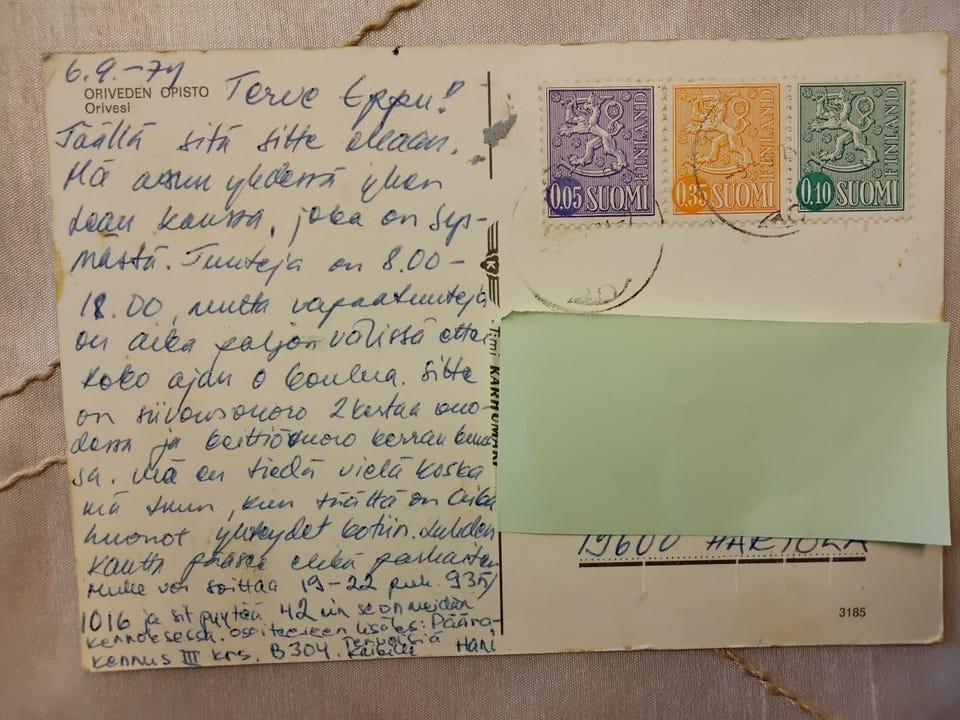 6.9.-74
ORIVEDEN OPISTO
Orivesi
Terve Eppu!
Täällä sitä sitte ollaan.
Mä asun yhdessä yhen
kaa kanssa, joka on Sys-
mästä. Tunteja on 8.00-
18.00, mutta vapaatunteja
on aika paljon välissä ettei
koko ajan o koulua. Sitte
on siivousvuoro 2 kertaa vuo-
dessa ja keittiövuoro kerran kuus-
sa. Mä en tiedä vielä koska
mä tuun, kun täältä on aika
huonot yhteydet kotiin. Lahden
kautta pääsee ehkä parhaiten
Mulle voi soittaa 19-22 puh. 935/
1016 ja sit pyytää 42:n se on meidän
kennoksessa. osoitteeseen lisäks: Päära-
kennus III krs. B304. Terveisiä
kaikille Hani
0,05 SUOMI FINLAND
0,35 SUOMI FINLAND
0,10 SUOMI FINLAND
T:mi KARHUMÄKI
19600 HARTOLA
3185